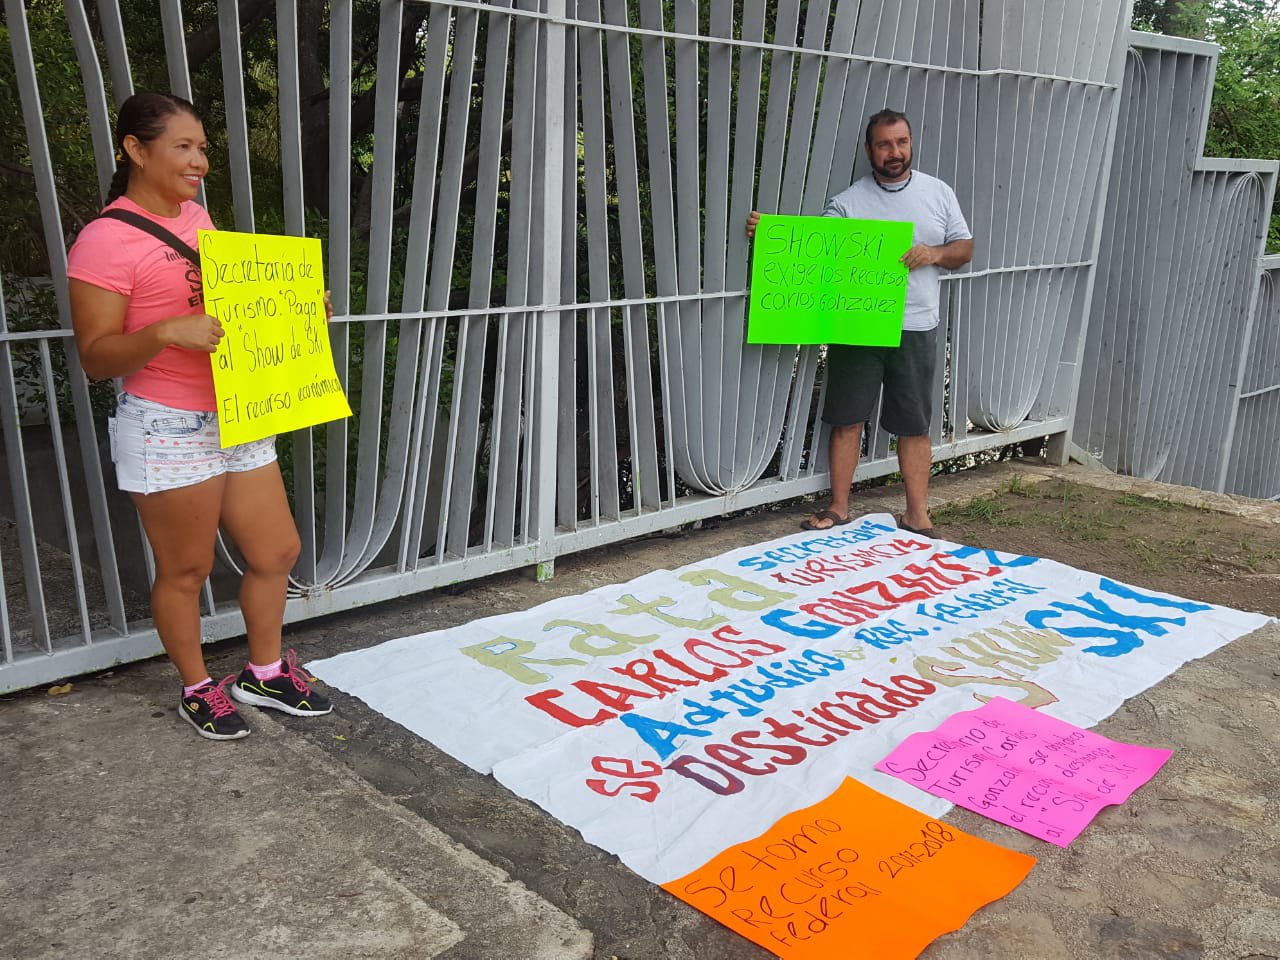 Secretaria de
Turismo. "Paga"
al "Show de Ski
El recurso económico
SHOWSKi
exige los Recurso
carlos Gonzalez
Rata
secretario
TURISMO
CARLOS GONZALEZ
se Adjudico Rec. Federal
Destinado SHOW SKI
Secretario de
Turism Carlos
Gonzal se
el recurso destinado
al "Show de Ski
Se tomo
RECURSO
Federal 2017-2018